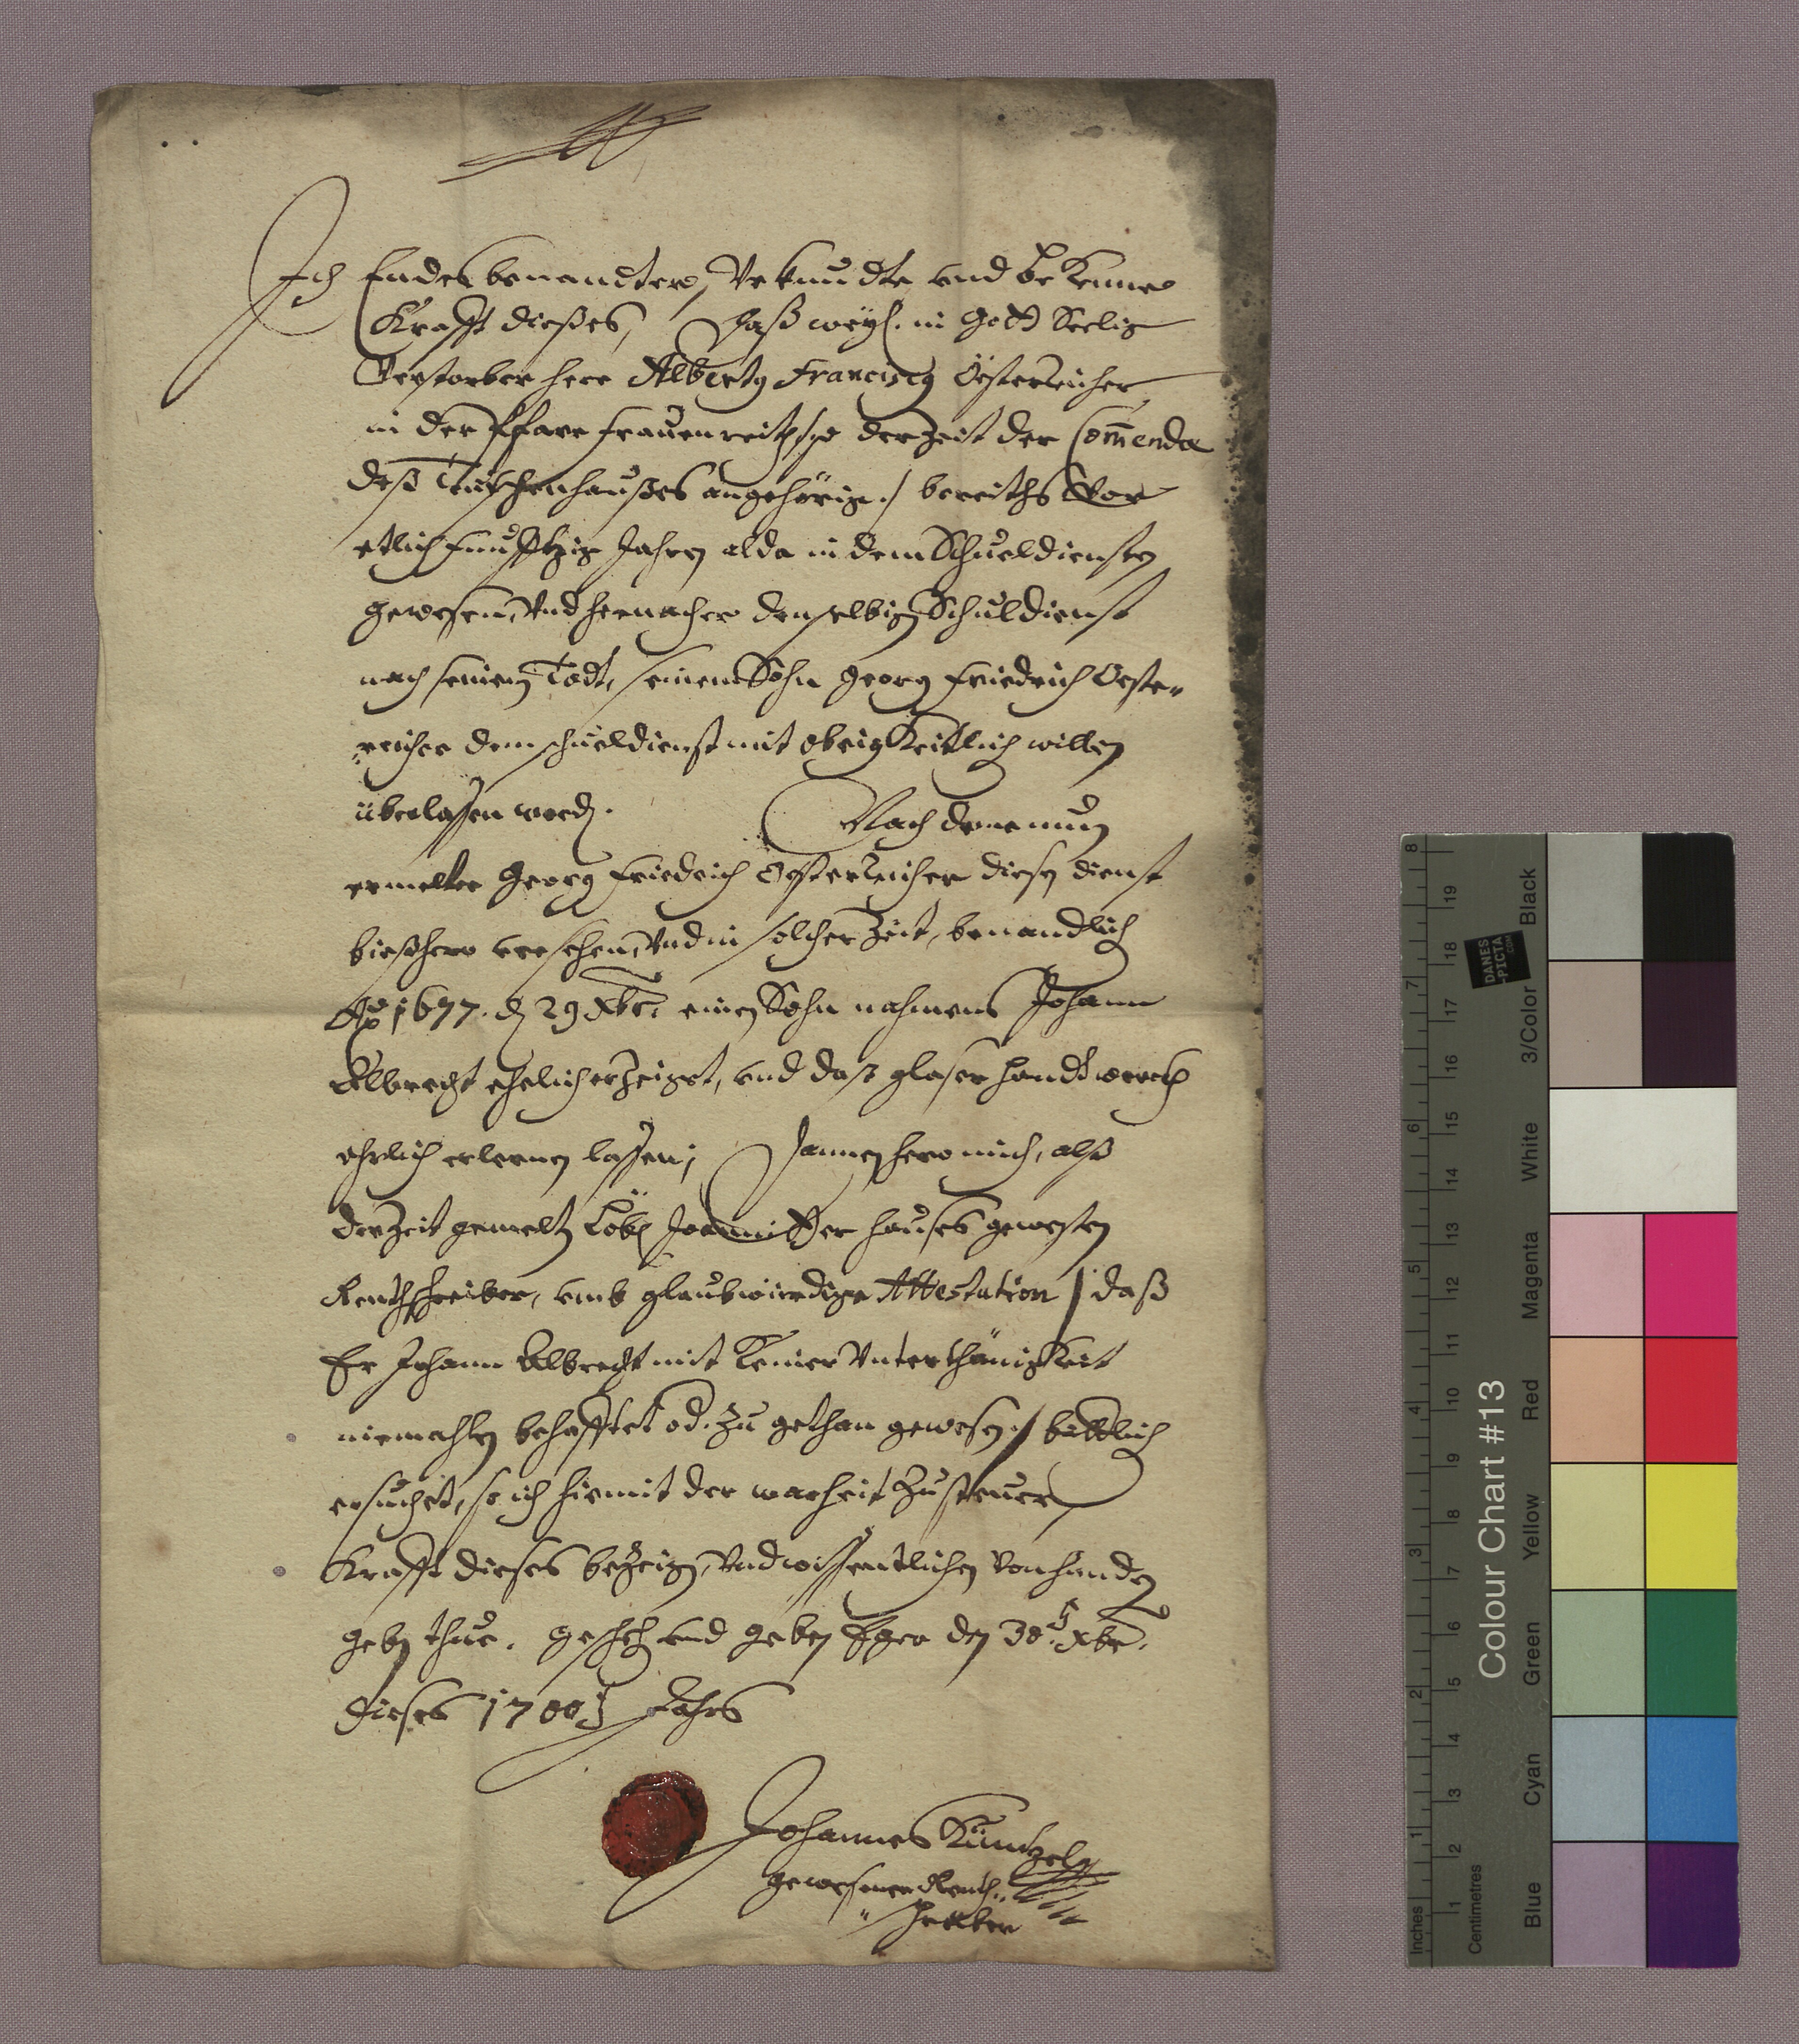 Ich Endes benandter, Vrkundte vnd beKenne
Krafft dießes, Daß weyl. in Gott Seelig
Verstorber herr Albertg Franciscg Österreicher
in der Pfarr frauenreith der Zeit der Comenda
deß Teütschenhaußes angehörig :/ bereiths Vor
etlich funfftzig Jahren alda in dem Schueldiensten
gewesen, Vnd hernacher denselbigen Schuldienst
nach seinem Todt, seinem Sohn Georg Friedrich Oester,,
,,reicher dem schueldienst mit obrigKeitlich willen
überlassen word. Nach deme nun
ermelter Georg Friedrich Oesterreicher diesen dienst
bießhero versehen, Vnd in solcher Zeit, benandlich
Ao 1677. d 29 Xbr. einen Sohn nahmens Johann
Albrecht ehelich erzeiget, vnd daß glaser handtwerch
ehrlich erlernen lassen; Dannenhero mich, alß
der Zeit gemelten Löbl Joannitter hauses gewesten
Renthschreiber, vmb glaubwürdige Attestation / daß
Er Johann Albrecht mit Keiner VnterthänigKeit
niemahlen behafftet od. zu gethan gewesen :/ bittlich
ersuchet, so ich hiemit der warheit Zu steuer
Krafft dieses bezeigen, Vnd wissentlichen Von handen
geben thue. gescheh vnd geben Eger den 30 t Xbr.
dieses 1700 t Jahrs
Johannes Küntzel
gewesener Renth,,
,, schreiber
8
7
6
5
4
3
2
1
Inches
19
18
17
16
15
14
13
12
11
10
9
8
7
6
5
4
3
2
1
Centimetres
Colour Chart #13
DANES
-PICTA
.COM
Black
3/Color
White
Magenta
Red
Yellow
Green
Cyan
Blue